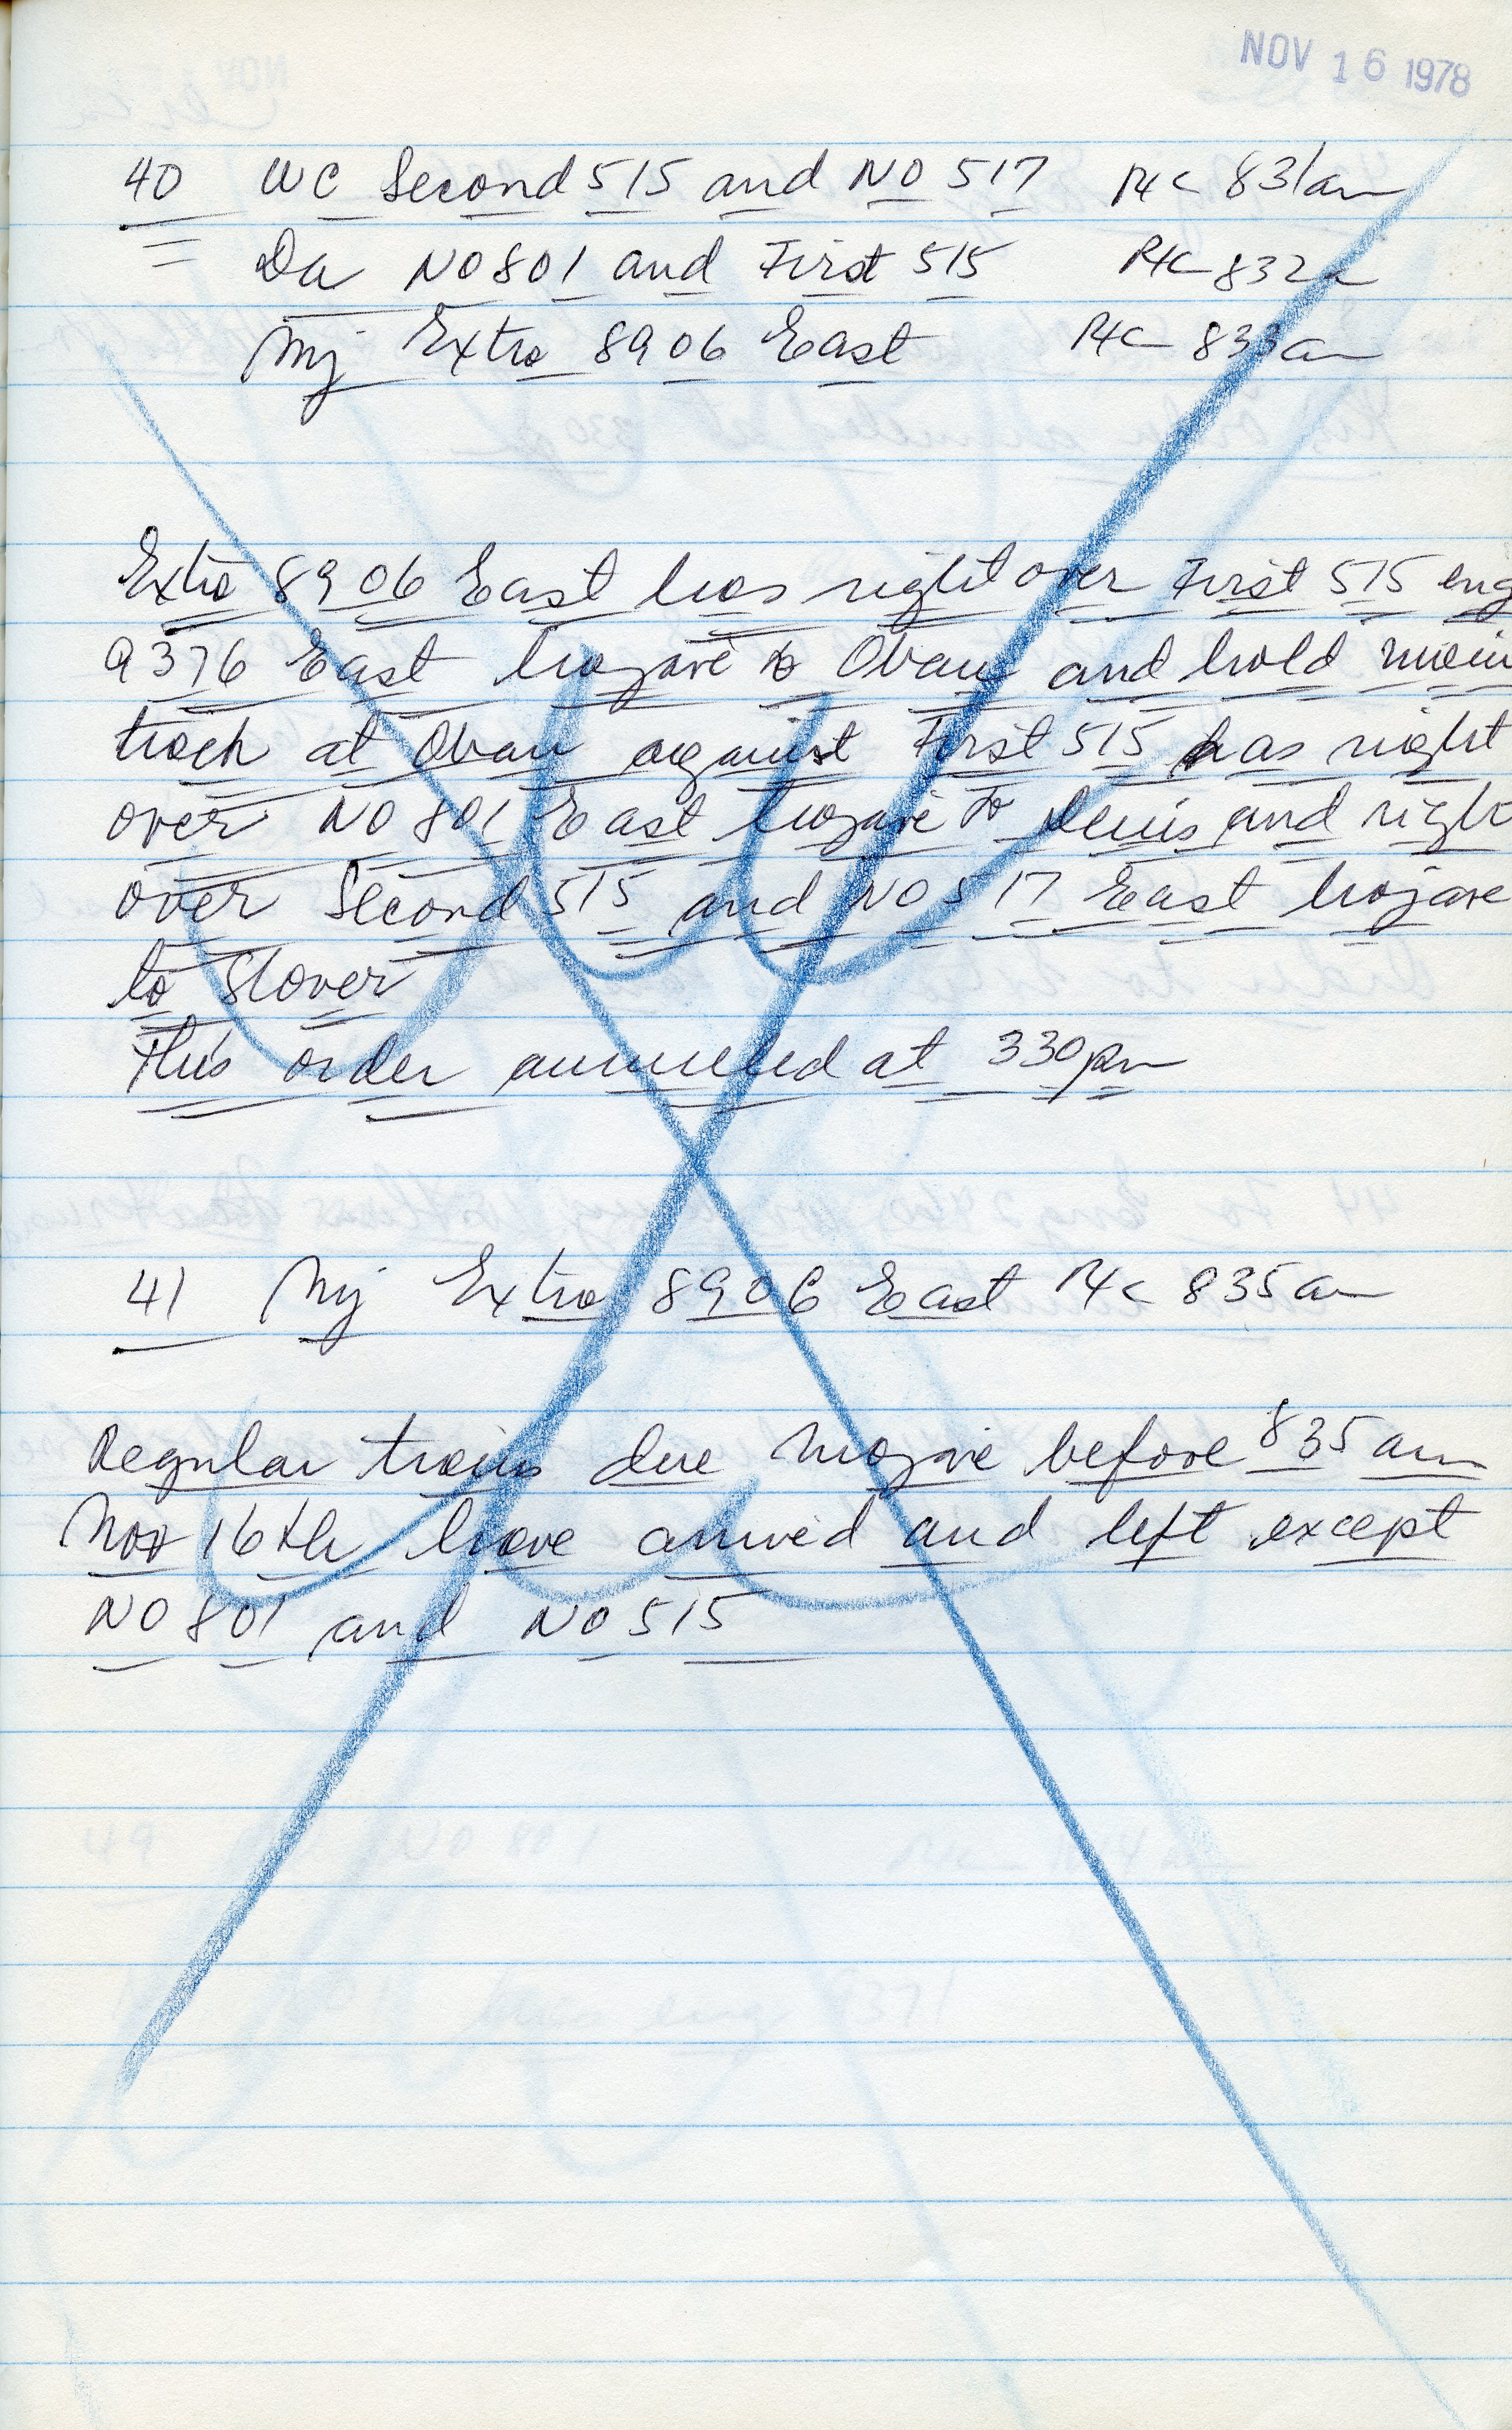 NOV 16 1978
40 WC Second 515 and No 517 831am
Da No 801 and First 515 832a
Mj Extra 8906 East 833am
Extra 8906 East has right over First 515 eng
9376 East Mojave to Oban and hold main
track at Oban against First 515 has right
over No 801 East Mojave to Denis and right
over Second 515 and No 517 East Mojave
to Slover
This order annulled at 330pm
41 Mj Extra 8906 East 835am
Regular trains due Mojave before 835 am
Nov 16th have arrived and left except
No 801 and No 515